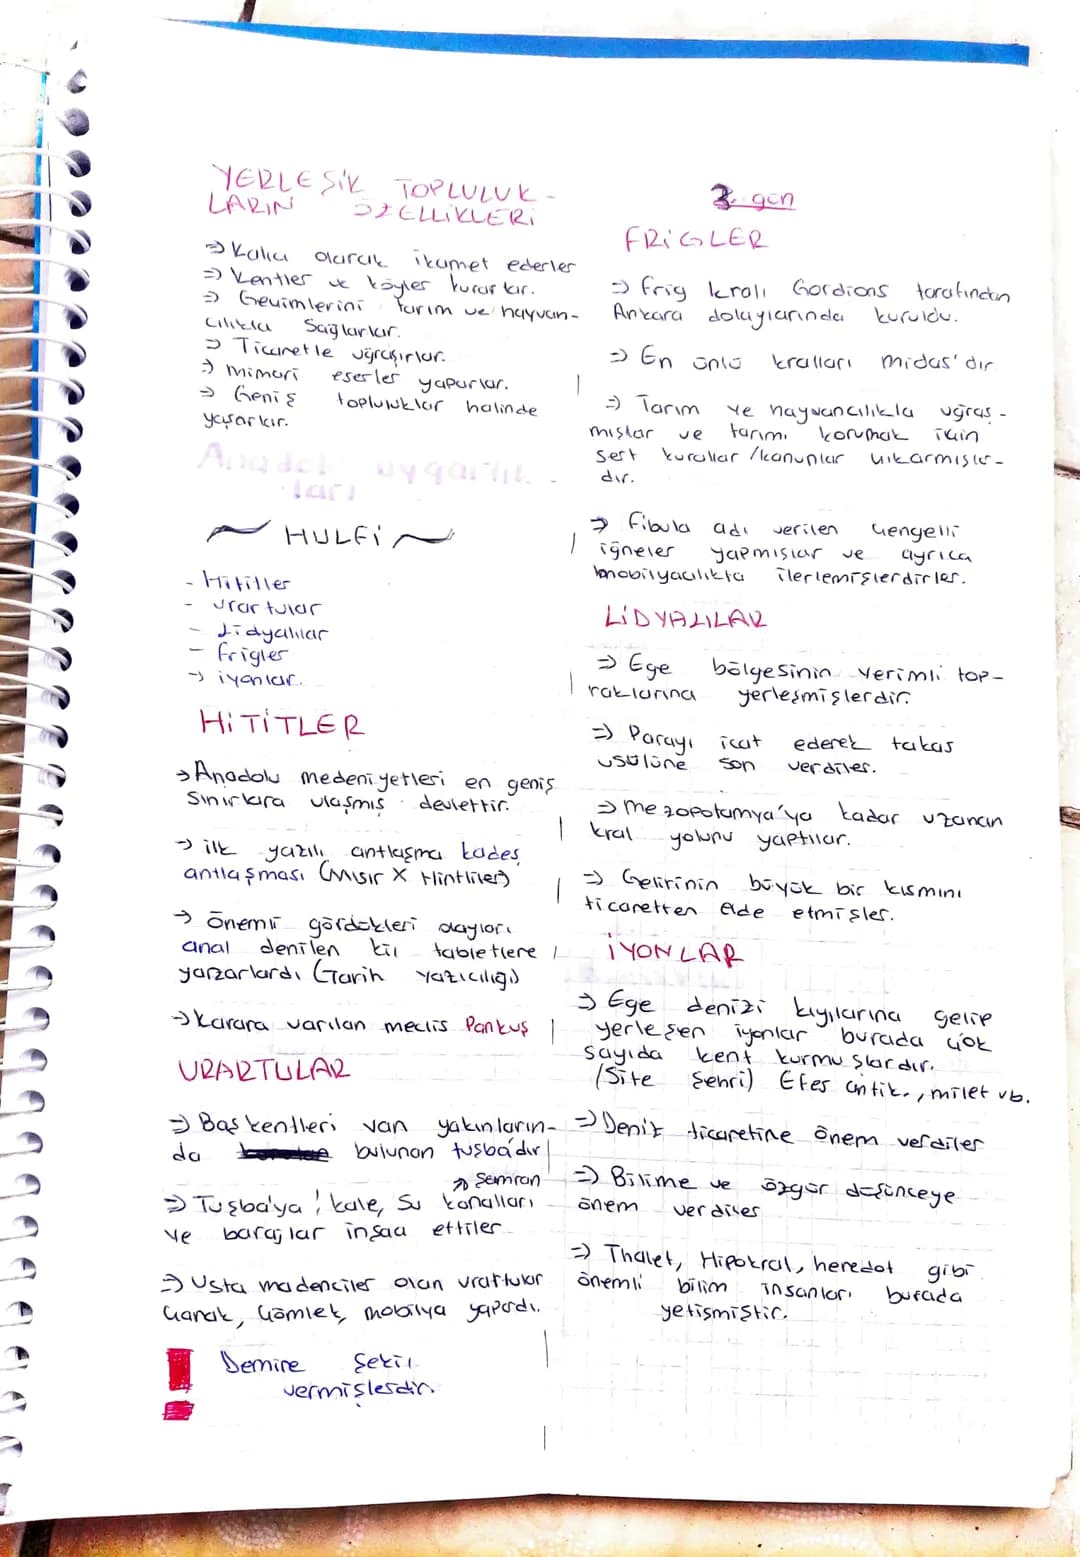 YERLEŞİK TOPLULUK-
LARIN ÖZELLİKLERİ
⇒ Kalıcı olarak ikamet ederler
⇒ Kentler ve köyler kurarlar.
⇒ Geçimlerini tarım ve hayvan-
cılıkla Sağlarlar.
⇒ Ticaretle uğraşırlar.
⇒ mimari eserler yaparlar.
⇒ Geniş topluluklar halinde
yaşarlar.
Anadolu uygarlık-
ları
~ HULFİ ~
- Hititler
- Urartular
- Lidyalılar
- frigler
→ iyonlar.
HİTİTLER
→ Anadolu medeniyetleri en geniş
Sınırlara ulaşmış devlettir.
→ ilk yazılı antlaşma kadeş
antlaşması (Mısır X Hintliler)
→ Önemli gördükleri olayları
anal denilen kil tabletlere
yazarlardı (Tarih yazıcılığı)
→ Karara varılan meclis Pankuş
URARTULAR
⇒ Başkentleri van yakınların-
da bulunan tuşba'dır
→ Semiran
⇒ Tuşba'ya kale, Su kanalları
ve barajlar inşaa ettiler
⇒ Usta madenciler olan urartular
Çanak, Çömlek, mobilya yapardı.
! Demire Şekil
vermişlerdir
3. gün
FRİGLER
⇒ frig kralı Gordions tarafından
Ankara dolaylarında kuruldu.
⇒ En ünlü kralları midas'dır
⇒ Tarım ve hayvancılıkla uğraş-
mışlar ve tarımı korumak için
sert kurallar /kanunlar çıkarmışla-
dır.
⇒ fibula adı verilen Çengelli
iğneler yapmışlar ve ayrıca
mobilyacılıkta ilerlemişlerdirler.
LİDYALILAR
⇒ Ege bölgesinin verimli top-
raklarına yerleşmişlerdir.
⇒ Parayı icat ederek takas
usülüne son verdiler.
⇒ mezopotamya'ya kadar uzanan
kral yolunu yaptılar.
⇒ Gelirinin büyük bir kısmını
ticaretten elde etmişler.
İYONLAR
⇒ Ege denizi kıyılarına gelip
yerleşen iyonlar burada çok
sayıda kent kurmuşlardır.
(Site Şehri) Efes antik., milet vb.
⇒ Deniz ticaretine önem verdiler
⇒ Bilime ve özgür düşünceye
önem verdiler
⇒ Thalet, Hipokral, heredot gibi
önemli bilim insanları burada
yetişmiştir.